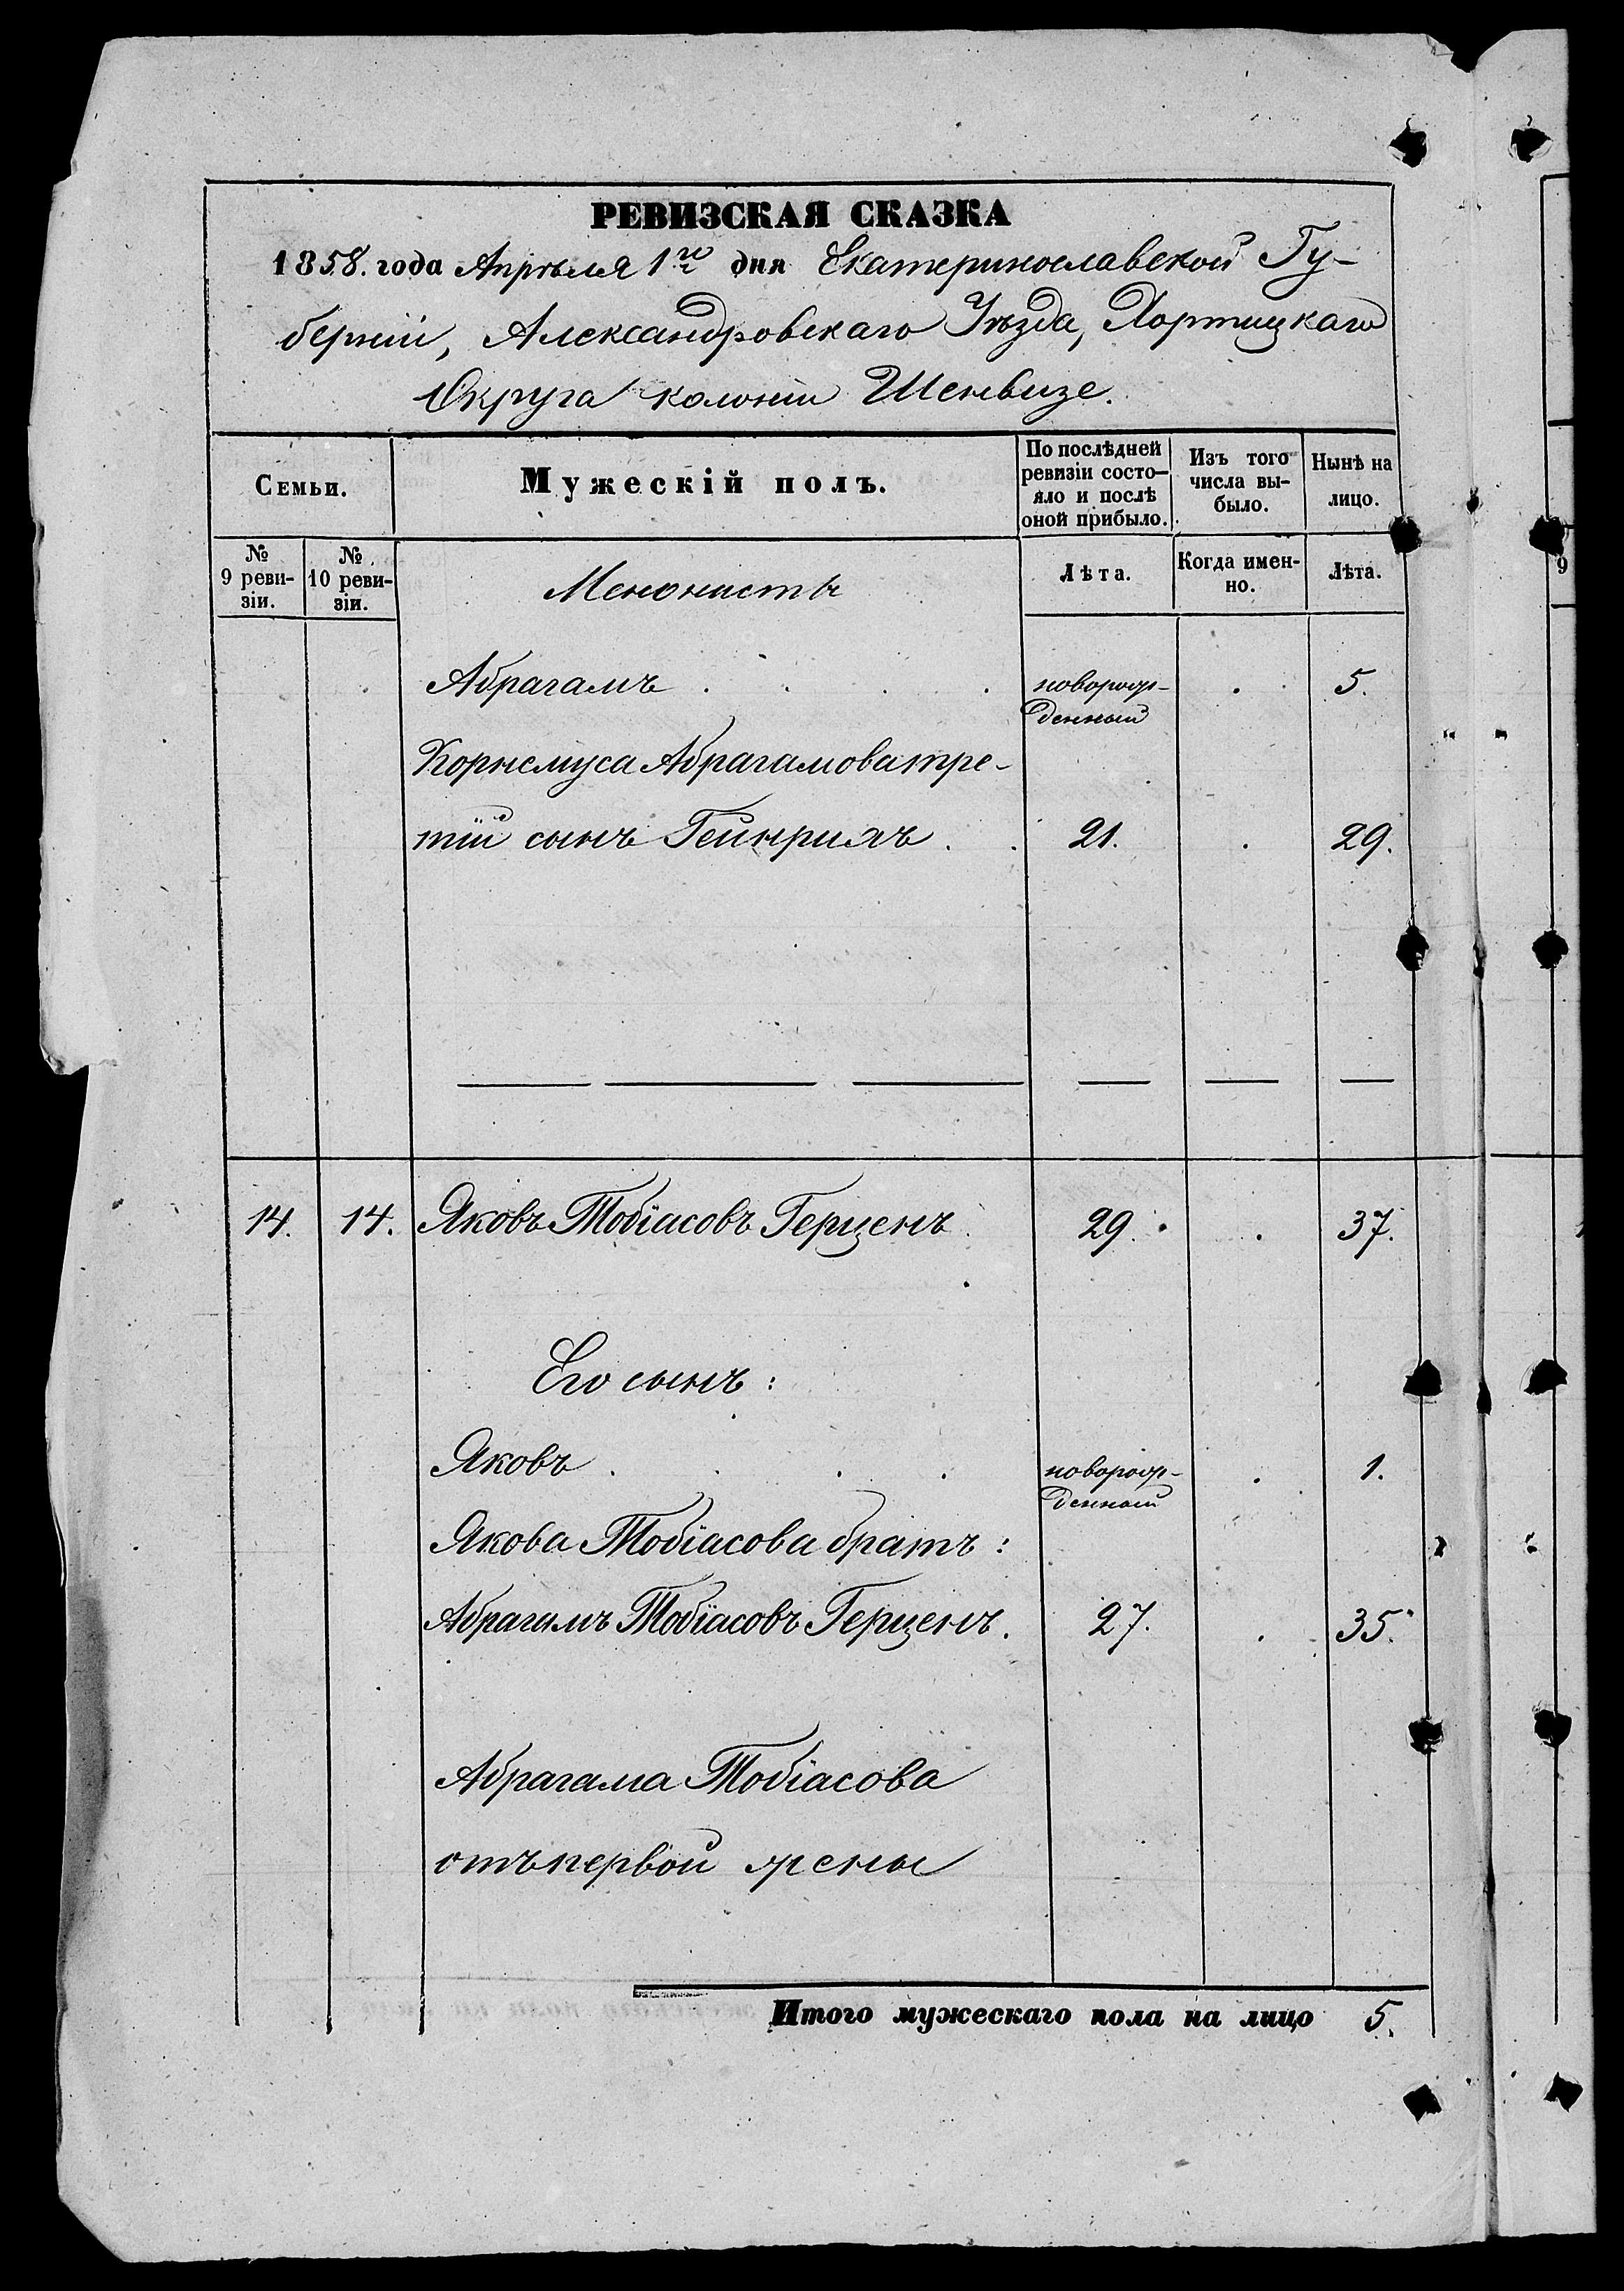 РЕВИЗСКАЯ СКАЗКА
1858. года Апрѣля 1го дня Екатеринославской Гу-
берніи, Александровскаго Уѣзда, Хортицкаго
Округа колоніи Шенвизе.
Семьи.
Мужескій полъ.
По послѣдней
ревизіи состо-
яло и послѣ
оной прибыло.
Изъ того
числа вы-
было.
Нынѣ на
лицо.
№
9 реви-
зіи.
№
10 реви-
зіи.
Менонисты
Лѣта.
Когда имен-
но.
Лѣта.
9
Абрагамъ . . . . новорож- . 5.
денный
Корнелиуса Абрагамова тре-
тій сынъ Гейнрихъ . . 21. . 29.
14. 14. Яковъ Тобіасовъ Герценъ 29. . 37.
Его сынъ:
Яковъ . . . . новорож- . 1.
денный
Якова Тобіасова братъ:
Абрагамъ Тобіасовъ Герценъ. 27. . 35.
Абрагама Тобіасова
отъ первой жены
Итого мужескаго пола на лицо 5.